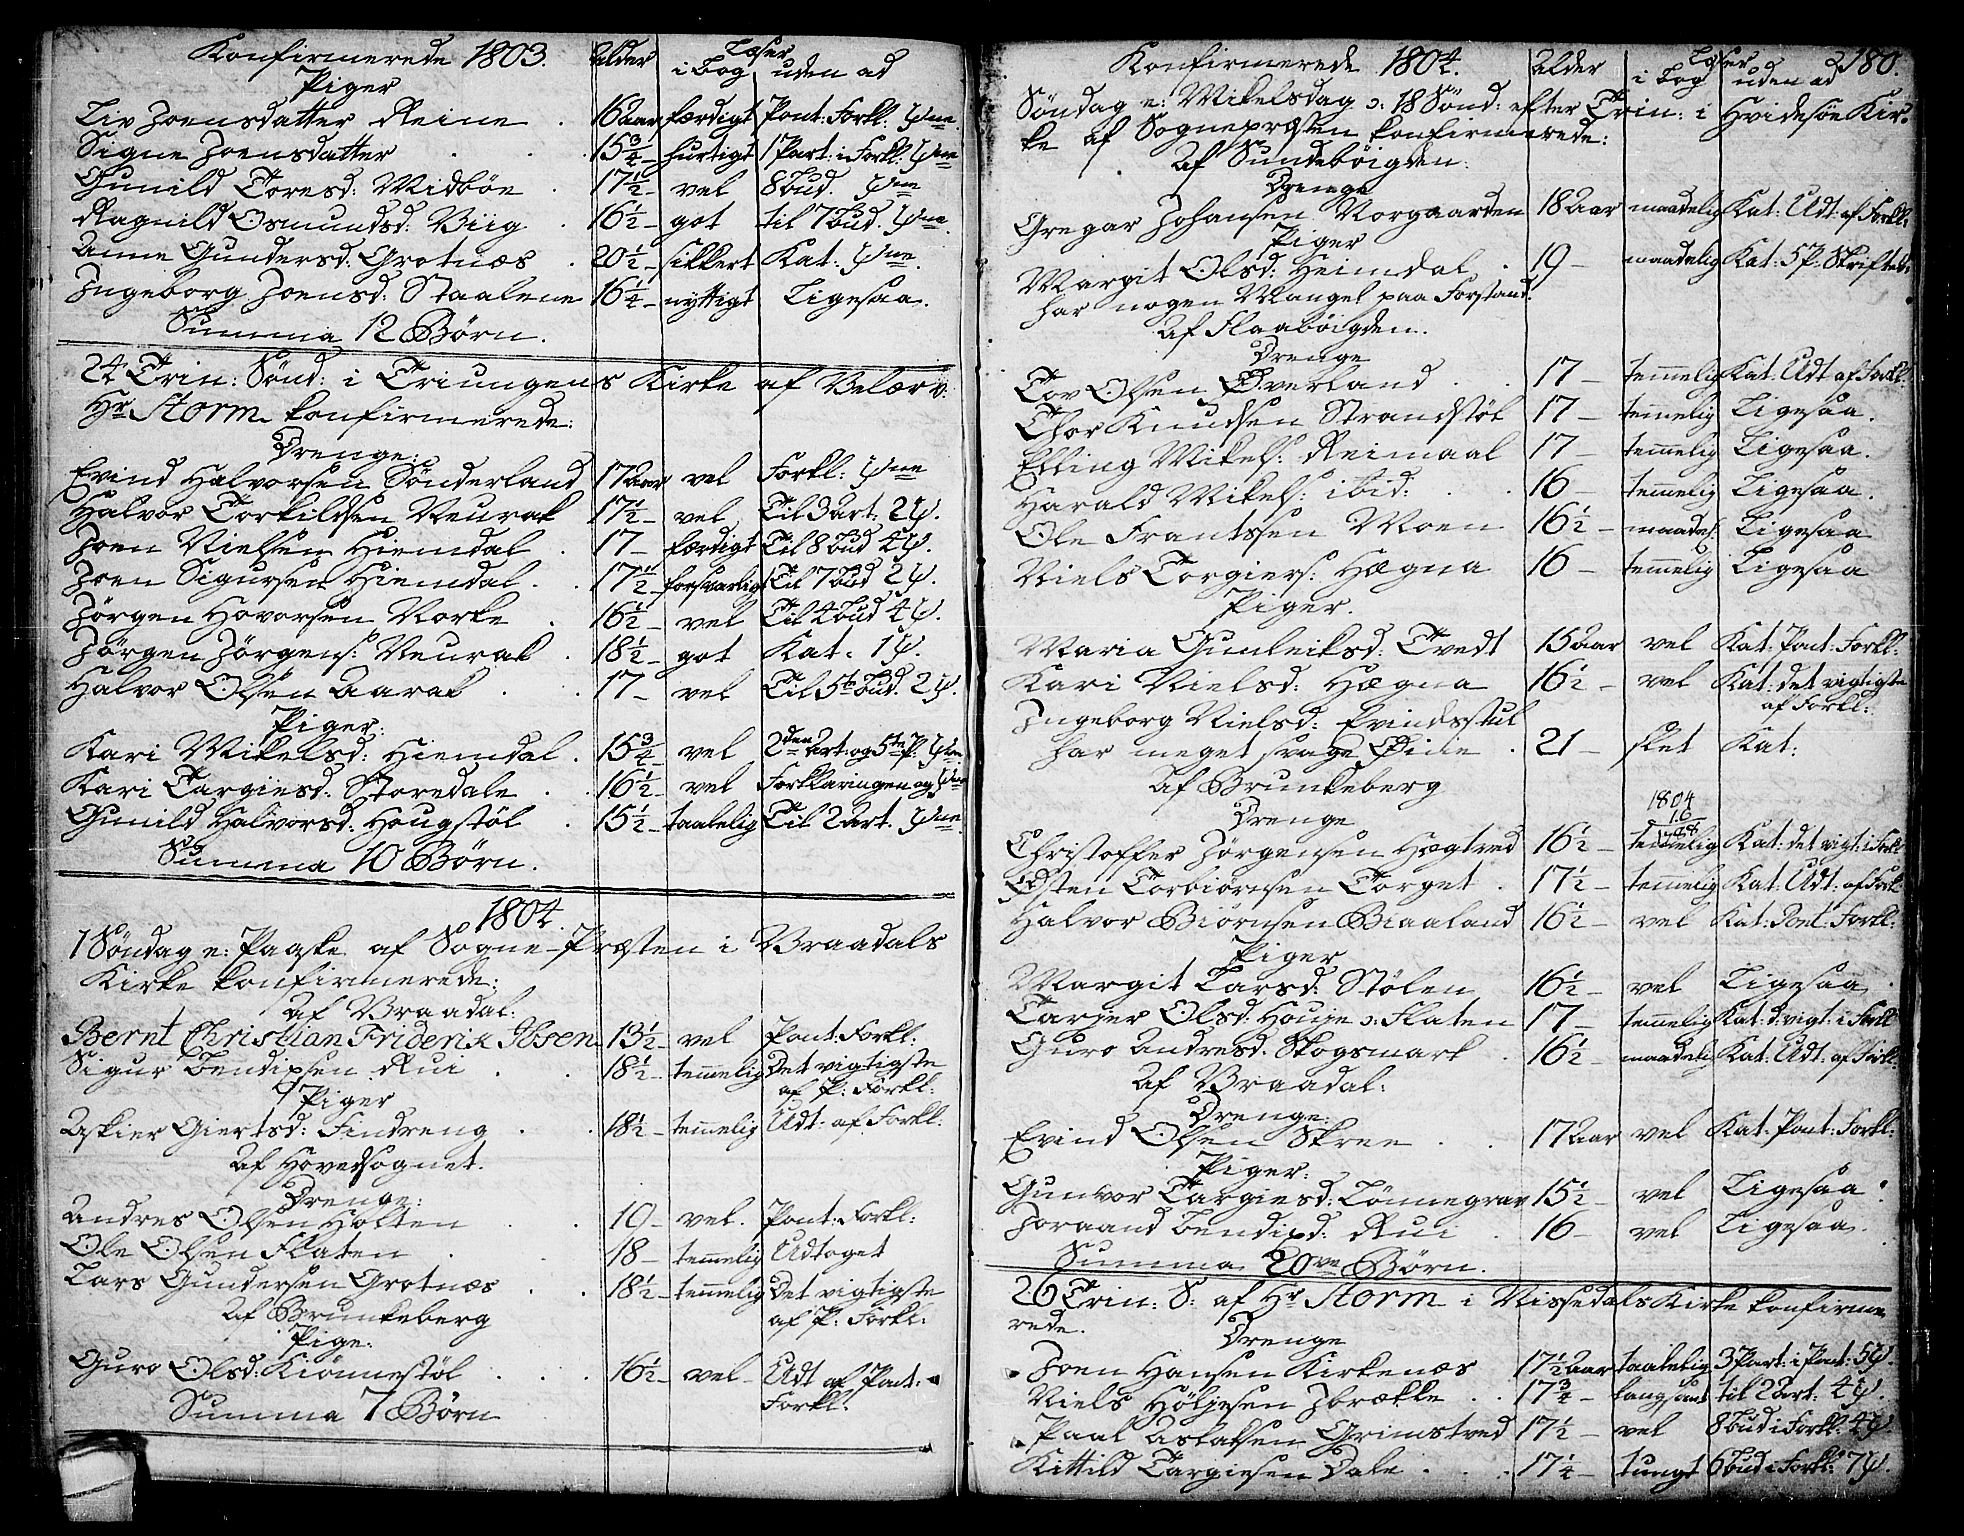 Konfirmerede 1803. Alder Læser
i Bog uden ad
Piger
Liv Joensdatter Reine . 16 Aar færdigt Pont: Forkl: ψne.
Signe Joensdatter . . . 15 3/4 – hurtigt 1 Part: i Forkl: ψne
Gunild Toresd: Midbøe . 17 1/2 – vel 8 Bud. ψne
Ragnild Osmundsd: Viig . 16 1/2 – got til 7 Bud. ψne.
Anne Gundersd: Grotnæs . 20 1/2 – sikkert Kat: ψne.
Ingeborg Joensd: Staalene 16 1/4 – nyttigt Ligesaa.
Summa 12 Børn.
24 Trin: Sønd: i Triungens Kirke af Velærv:
Hr Storm konfirmerede:
Drenge:
Evind Halvorsen Sønderland 17 Aar vel Forkl: ψne
Halvor Torkildsen Neurak 17 1/2 – vel Til 3 Art: 2ψ.
Joen Nielsen Hiemdal . 17 – færdigt Til 8 Bud 4ψ.
Joen Sigursen Hiemdal . 17 1/2 – forsvarligt Til 7 Bud 2ψ.
Jørgen Hovorsen Norke . 16 1/2 – vel Til 4 Bud 4ψ.
Jørgen Jørgens: Neurak . 18 1/2 – got Kat: 1ψ.
Halvor Olsen Aarak . . 17 – vel Til 5te Bud. 2ψ.
Piger:
Kari Mikelsd: Hiemdal . 15 3/4 – vel 2den Art: og 5te P: ψne.
Kari Targiesd: Storedale . . 16 1/2 – vel Forklaringen og ψne
Gunild Halvorsd: Hougstøl . 15 1/2 – taalelig Til 2 Art. ψne.
Summa 10 Børn.
1804.
1 Søndag e: Paaske af Sogne-Præsten i Vraadals
Kirke konfirmerede:
Af Vraadal:
Bernt Christian Friderik Ibsen 13 1/2 – vel Pont: Forkl:
Sigur Bendixsen Rui . . 18 1/2 – temmelig Det vigtigste
af P: Forkl:
Piger
Askier Giertsd: Findreng . . 18 1/2 – temmelig Udt: af Forkl:
Af Hovedsognet.
Drenge:
Andres Olsen Holten . . 10 – vel. Pont: Forkl:
Ole Olsen Flaten . 18 – temmelig Udtoget
Lars Gundersen Grotnæs . . 18 1/2 – temmelig Det vigtigste
af P: Forkl:
Af Brunkeberg
Pige:
Guro Olsd: Kiønnestøl . . . 16 1/2 – vel – Udt af Pont:
Forkl:
Summa 7 Børn
Konfirmerede 1804. Alder Læser 180.
i Bog uden ad
Søndag e: Mikelsdag ɔ: 18 Sønd: efter Trin: i Hvidesøe Kir-
ke af Sognepræsten konfirmerede:
Af Sundebøigden:
Drenge
Gregar Johansen Norgaarden 18 Aar maadelig Kat: Udt: af Forkl:
Piger
Margit Olsd: Heimdal . 19 – maadelig Kat: 5 P: Skrifted:
har nogen Mangel paa Forstand.
Af Flaabøigden.
Drenge
Tov Olsen Øverland . . 17 – temmelig Kat: Udt af Forkl:
Thor Knudsen Strandstøl 17 – temmelig Ligesaa.
Elling Mikels: Reimaal 17 – temmelig Ligesaa.
Harald Mikels: ibid: . . 16 – temmelig Ligesaa.
Ole Frantsen Moen 16 1/2 – maadel. Ligesaa
Niels Torgiers: Hægna 16 – temmelig Ligesaa
Piger.
Maria Gunleiksd: Tvedt 15 Aar vel Kat: Pont: Forkl:
Kari Nielsd: Hægna 16 1/2 – vel Kat: det vigtigste
af Forkl:
Ingeborg Nielsd: Evindsstul
har meget svage Øine . 21 – slet Kat:
Af Brunkeberg
Drenge
1804
16
1788
Christoffer Jørgensen Hægtved 16 1/2 – temmelig Kat: det vigt: i Forkl
Østen Torbiørnsen Torget . 17 1/2 – temmelig Kat: Udt: af Forkl
Halvor Biørnsen Biaaland 16 1/2 – vel Kat: Pont: Forkl:
Piger
Margit Larsd: Stølen 16 1/2 – vel Ligesaa
Tarjer Olsd: Houje ɔ: Flaten 17 – temmelig Kat: d. vigt: i Forkl
Guro Andresd: Skogsmark . 16 1/2 maadelig Kat: Udt: af Forkl:
Af Vraadal:
Drenge:
Evind Olsen Skree . . 17 Aar vel Kat: Pont: Forkl:
Piger:
Gunvor Targiesd: Lønnegrav 15 1/2 – vel Ligesaa
Joraand Bendixd: Rui . 16 – vel Ligesaa.
Summa 20ve Børn.
26 Trin: S: af Hr Storm i Nissedals Kirke konfirme
rede.
Drenge
Joen Hansen Kirkenæs 17 1/2 Aar taalelig 3 Part: i Pont: 5ψ.
Niels Høljesen Jbrække . . 17 3/4 – langsomt til 2 Art: 4ψ.
Paal Aslaksen Grimstved 17 1/2 – vel 8 Bud i Forkl: 4ψ.
Kittild Targiesen Dale . . . 17 1/4 – tungt 6 Bud i Forkl: 7ψ.